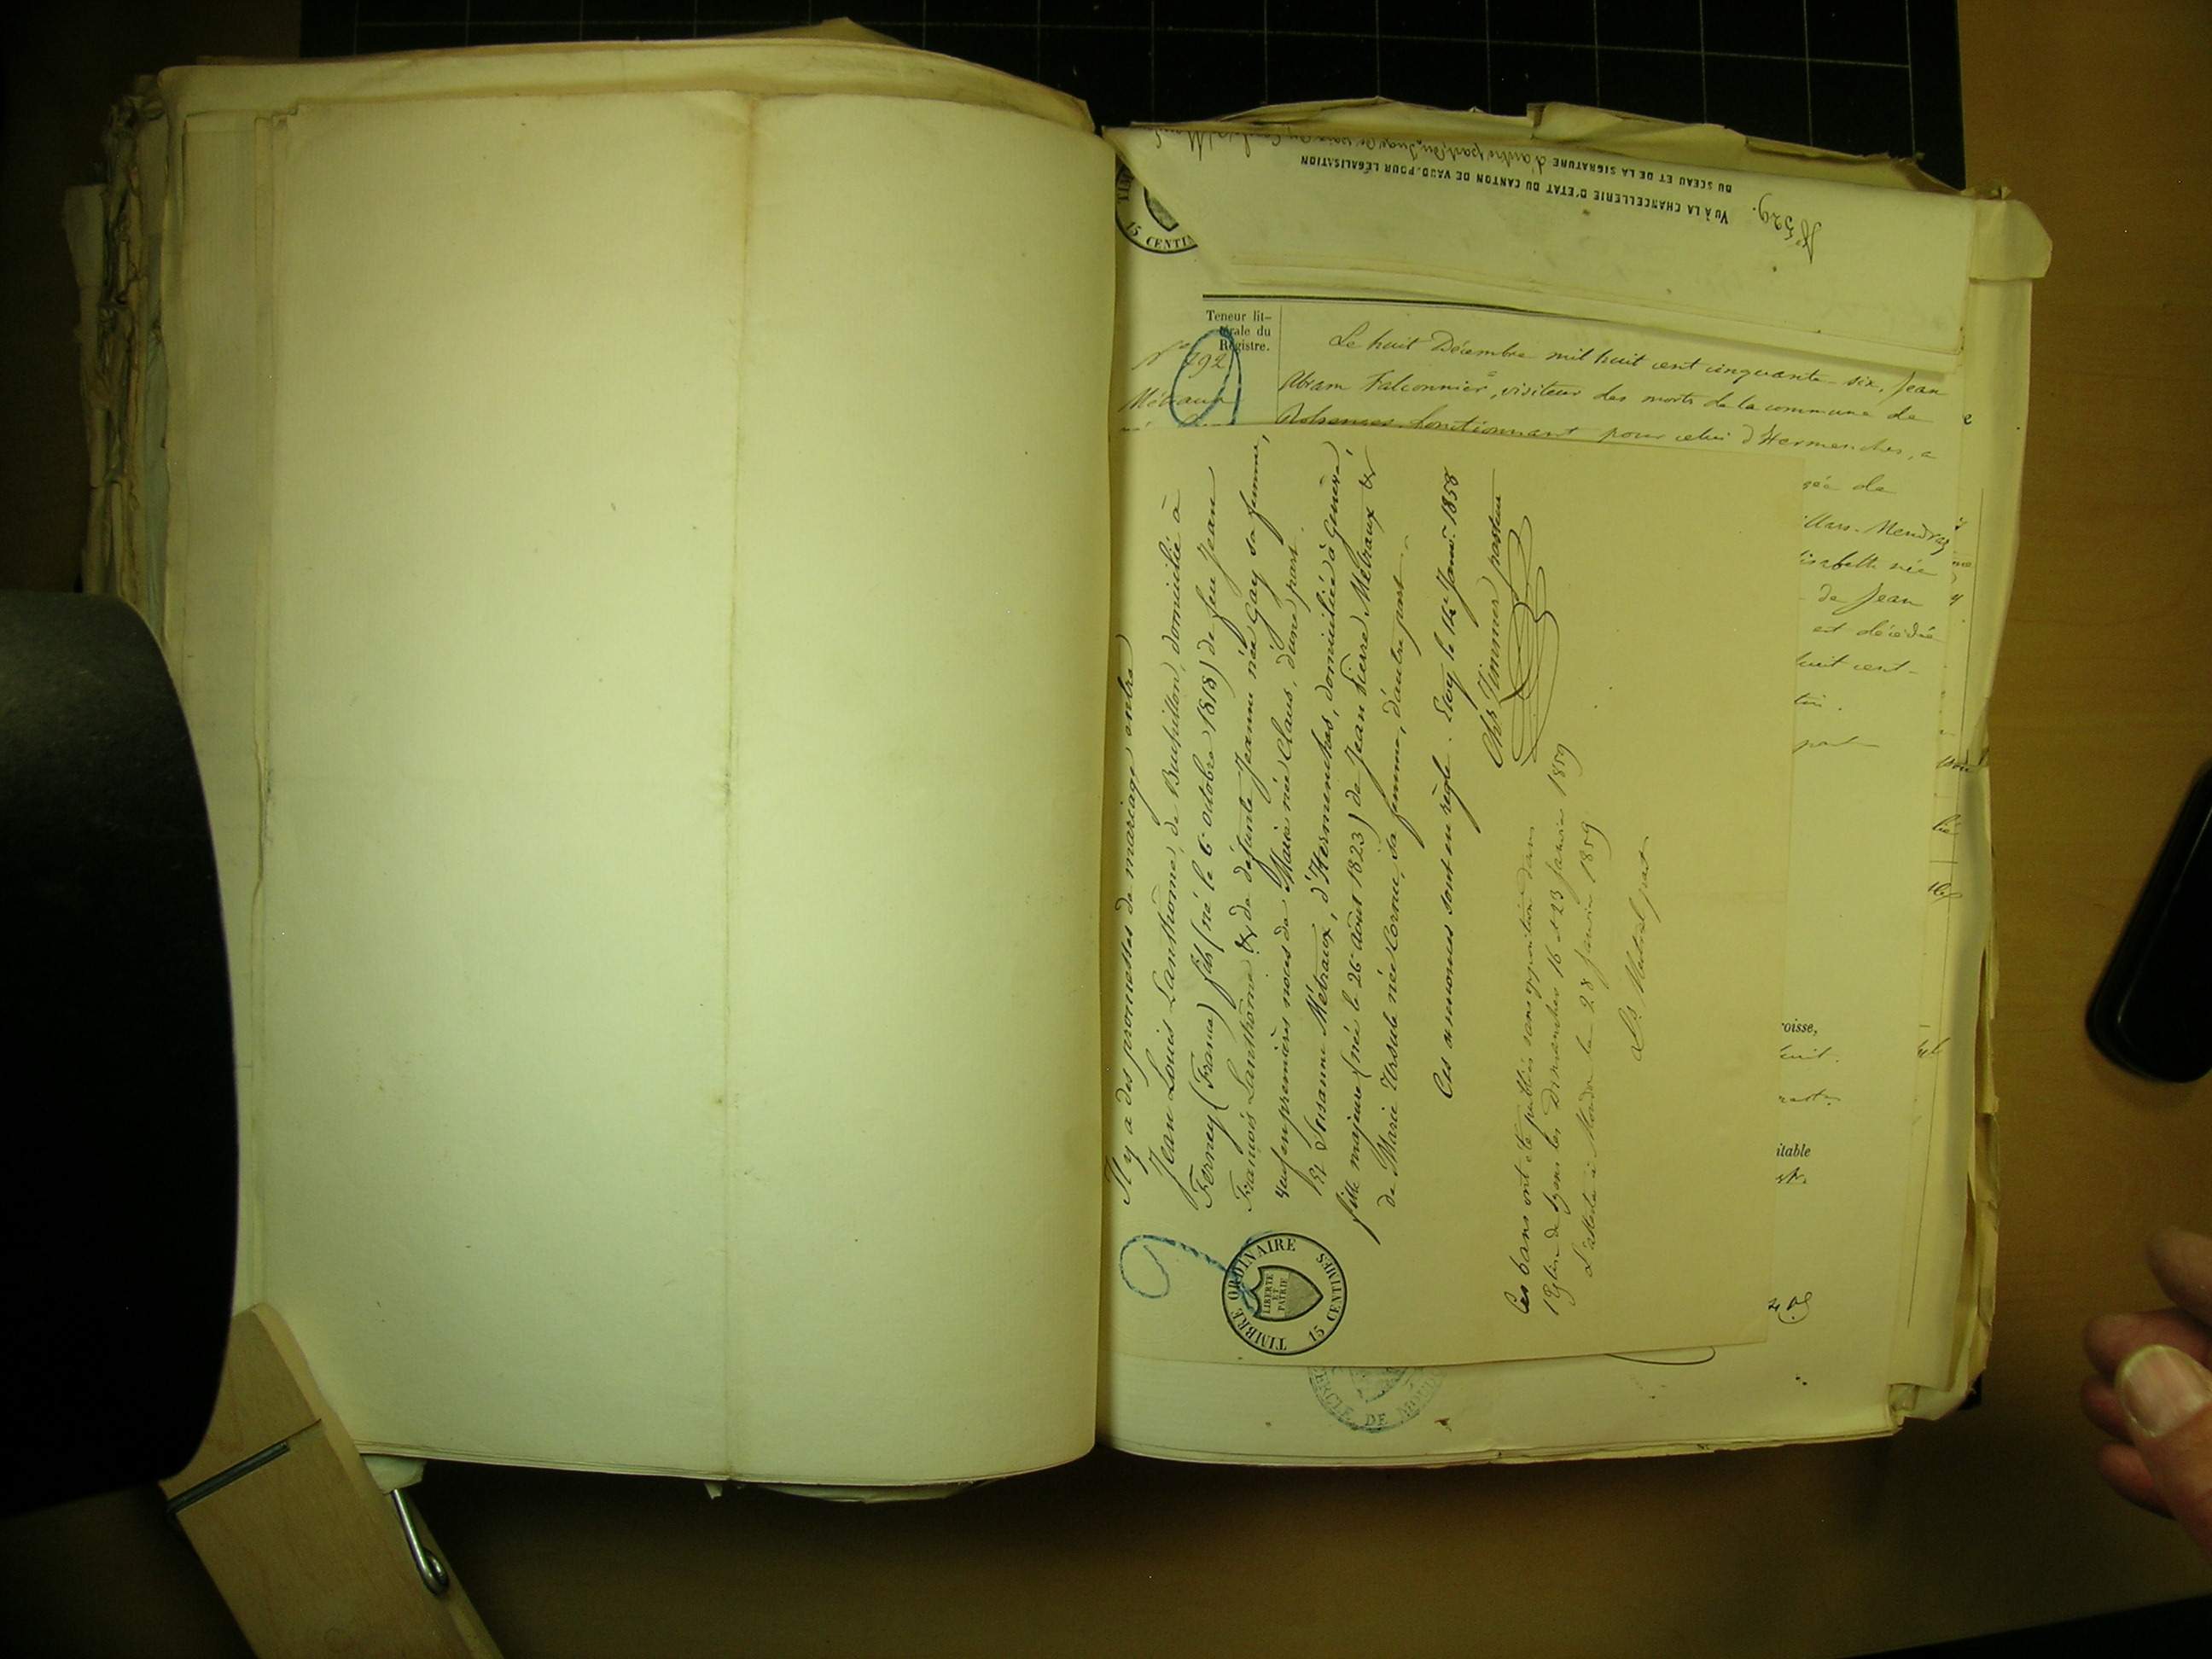 Il y a des promesses de mariage entre
Jean Louis Lanthome, de Burpillon, domicilié à
Ferney (France) fils (né le 6 octobre 1818) de feu Jean
François Lanthome & de défunte Jeanne née Gay sa femme,
veuf en premières noces de Marie née Claus, d'une part.
Et Susanne Métraux, d'Hermenches, domiciliée à Genève,
fille majeure (née le 26 août 1823) de Jean Pierre Métraux &
de Marie Ursule née Cornu, sa femme, d'autre part.
Ces annonces sont en règle. le 14 Janv. 1858
pasteur
Ces bans ont été publiés sans opposition dans
l'Eglise de Syens les Dimanches 16 et 23 Janvier 1859
L'atteste à Moudon le 28 Janvier 1859
TIMBRE ORDINAIRE
LIBERTE
ET
PATRIE
15 CENTIMES
15 CENTI
No 529.
VU À LA CHANCELLERIE D'ETAT DU CANTON DE VAUD, POUR LÉGALISATION
DU SCEAU ET DE LA SIGNATURE d'autre part du Juge de paix du
Teneur lit-
térale du
Registre.
No 192
Métraux
Le huit Décembre mil huit cent cinquante-six, Jean
Abram Falconnier, visiteur des morts de la commune de
fonctionnant pour celui d'Hermenches, a
de
illars-Mendraz
isabeth née
de Jean
est décédée
huit cent
part
oisse,
itable
CERCLE DE MOUD